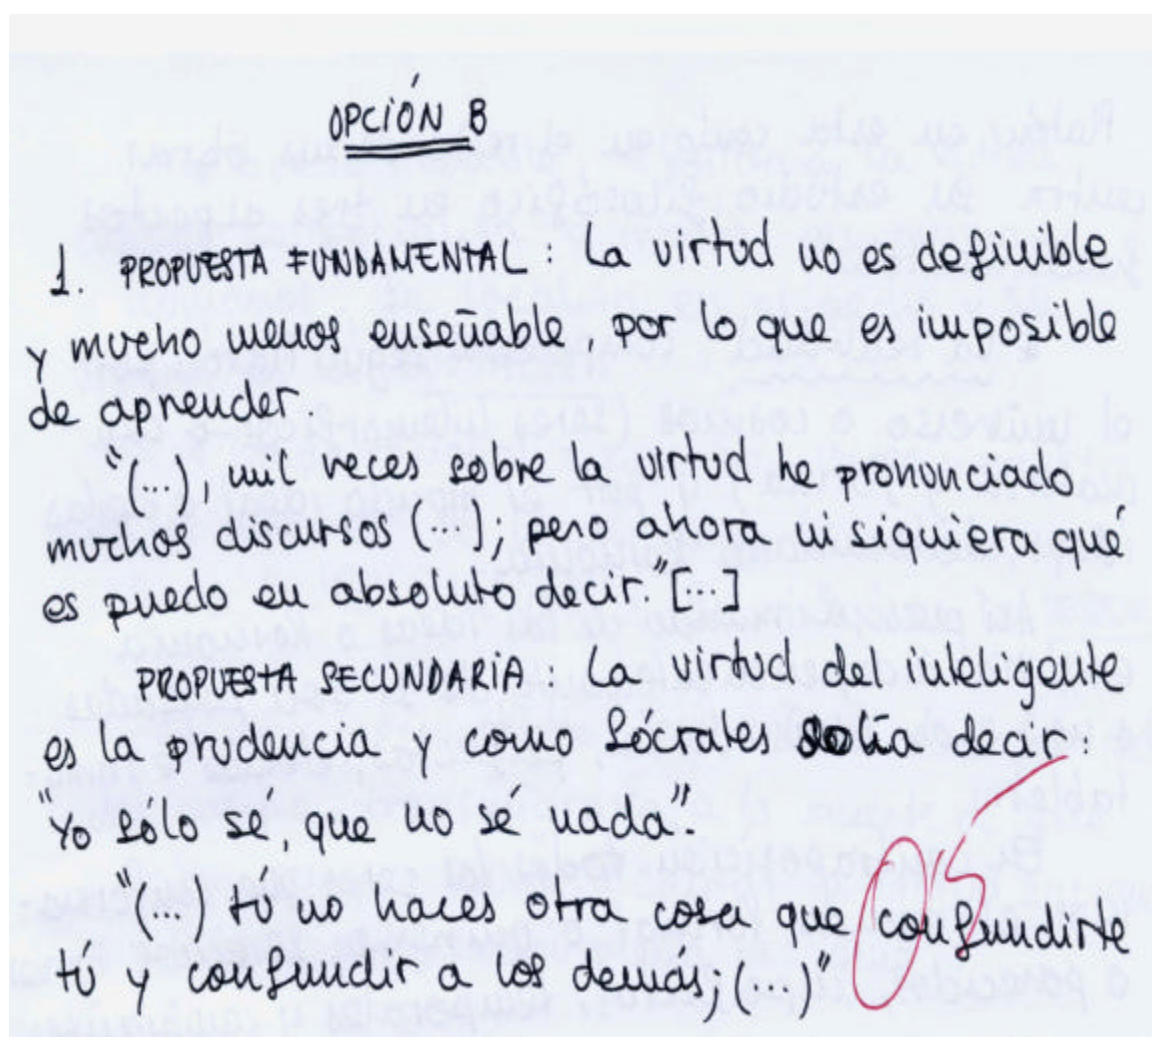 OPCIÓN B
1. PROPUESTA FUNDAMENTAL : La virtud no es definible
y mucho menos enseñable, por lo que es imposible
de aprender.
"(...), mil veces sobre la virtud he pronunciado
muchos discursos (...); pero ahora ni siquiera qué
es puedo en absoluto decir." [...]
PROPUESTA SECUNDARIA : La virtud del inteligente
es la prudencia y como Sócrates solía decir:
"Yo sólo sé, que no sé nada".
"(...) tú no haces otra cosa que confundirte
tú y confundir a los demás; (...)"
0'5